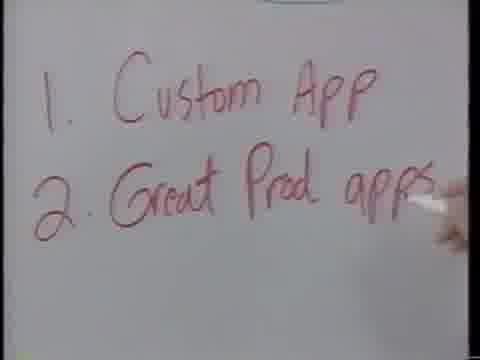 1. Custom App
2. Great Prod apps